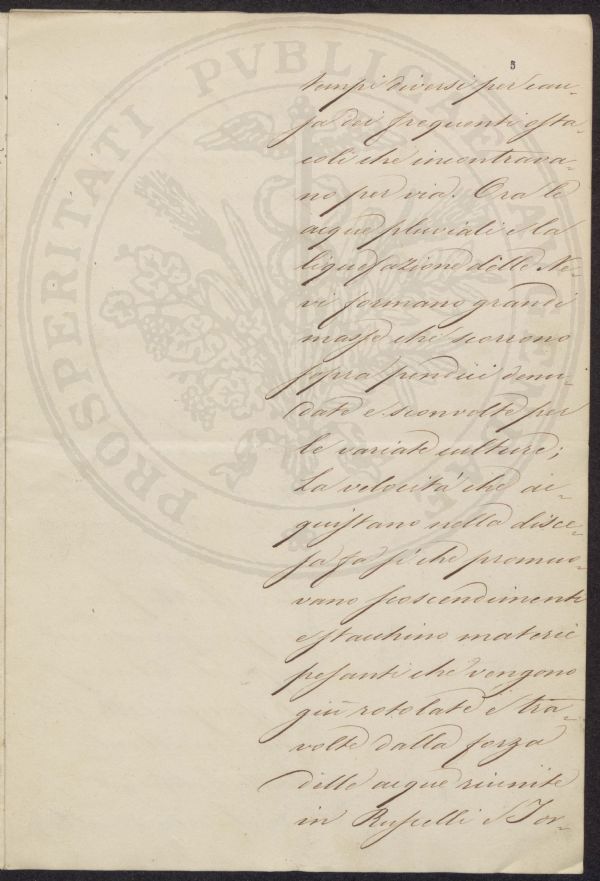 5
tempi diversi per cau-
sa dei frequenti osta-
coli che incontrava-
no per via. Ora le
acque pluviali e la
liquefazione delle Ne-
vi formano grandi
masse che scorrono
sopra pendici denu-
date e sconvolte per
le variate culture;
La velocità che ac-
quistano nella disce-
sa fa sì che promuo-
vano scoscendimenti
e stacchino materie
pesanti che vengono
giù rotolate e tra-
volte dalla forza
delle acque riunite
in Ruscelli e Tor-
PROSPERITATI PVBLICAE